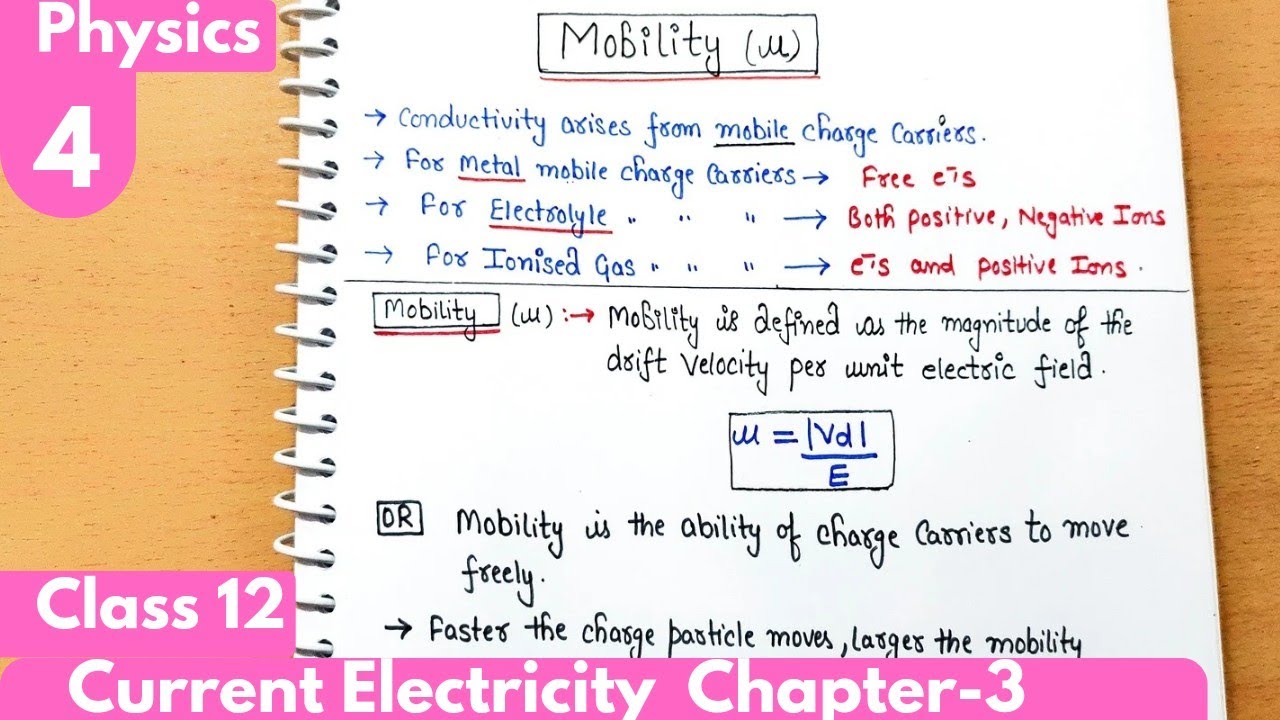 Physics
4
Mobility (μ)
→ Conductivity arises from mobile charge Carriers.
→ For Metal mobile charge Carriers → Free e⁻s
→ For Electrolyle " " " → Both positive, Negative Ions
→ For Ionised Gas " " " → e⁻s and positive Ions.
Mobility (μ) :→ Mobility is defined as the magnitude of the
drift Velocity per unit electric field.
μ = |Vd|
E
OR Mobility is the ability of charge Carriers to move
freely.
→ Faster the charge particle moves, larger the mobility
Class 12
Current Electricity Chapter-3